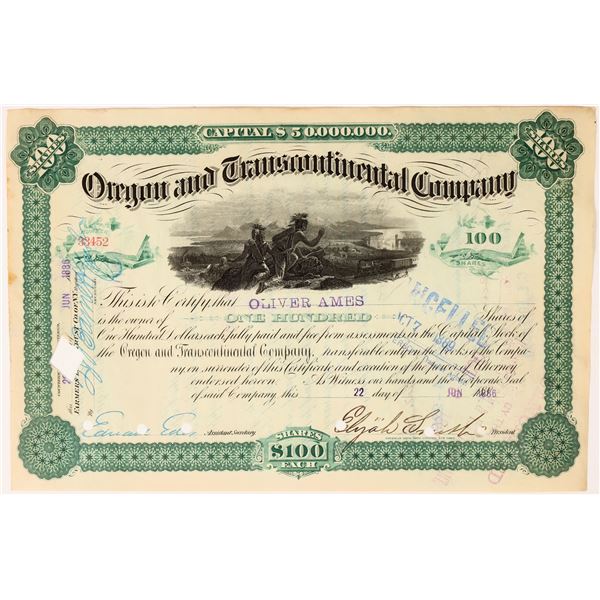 CAPITAL $50,000,000.
100 SHARES
100 SHARES
Oregon and Transcontinental Company
NUMBER
33452
100
SHARES
CANCELLED
This is to Certify that OLIVER AMES
is the owner of ONE HUNDRED Shares of
One Hundred Dollars each fully paid and free from assessments in the Capital Stock of
the Oregon and Transcontinental Company, transferable only on the Books of the Compa-
ny on surrender of this Certificate and execution of the power of Attorney
endorsed hereon. As Witness our hands and the Corporate Seal
of said Company this 22 day of JUN 1886
Assistant Secretary
Elijah Smith
President
SHARES
$100
EACH
JUN 1886
FARMERS
By